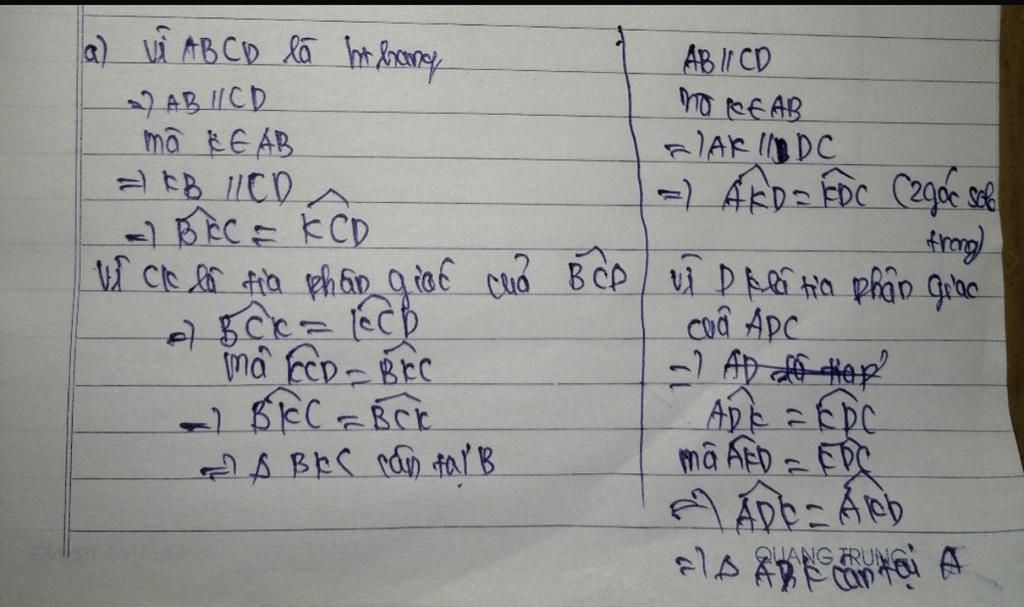 a) Vì ABCD là ht hang
=> AB // CD
mà K ∈ AB
=> KB // CD
=> BKC = KCD
Vì CK là tia phân giác của BCD
=> BCK = KCD
mà KCD = BKC
=> BKC = BCK
=> Δ BKC cân tại B
AB // CD
mà K ∈ AB
=> AK // DC
=> AKD = KDC (2 góc sole
trong)
vì DK là tia phân giác
của ADC
=> AD là tia p
ADK = KDC
mà AKD = KDC
=> ADK = AKD
=> Δ ADK cân tại A
QUANG TRUNG